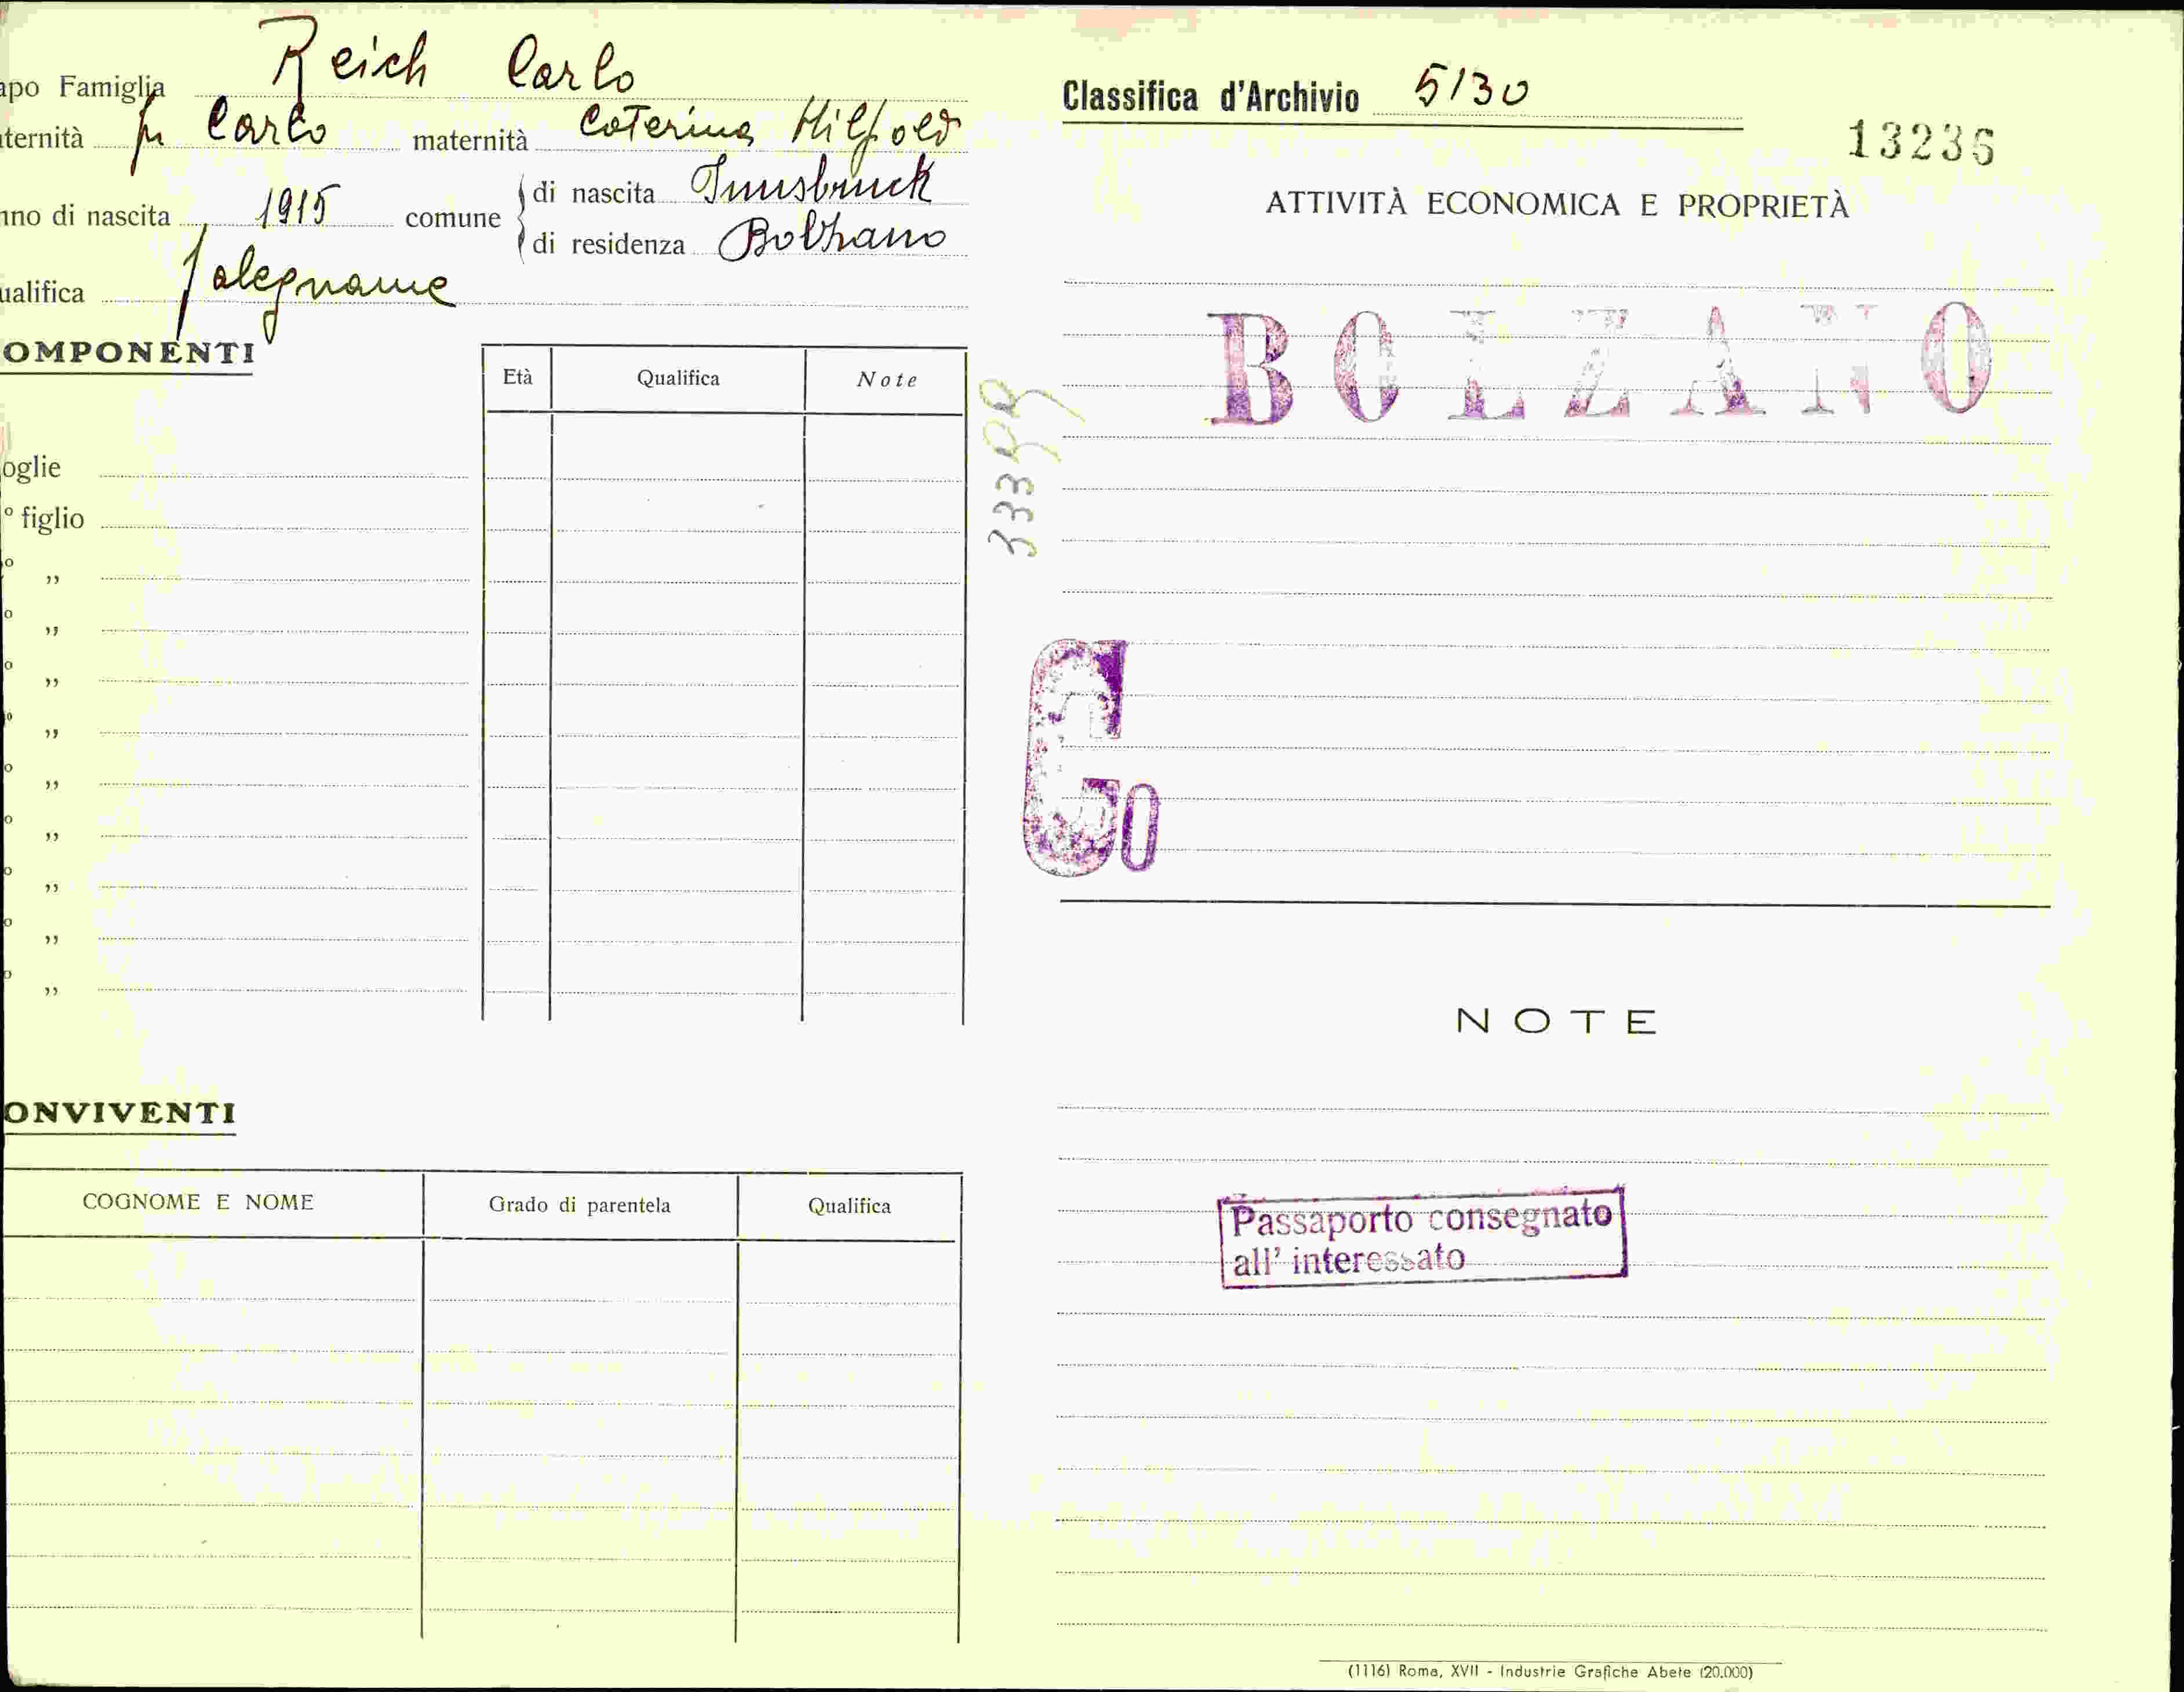 apo Famiglia Reich Carlo
ternità fu Carlo maternità Caterina Hilpold
nno di nascita 1915 comune di nascita Innsbruck
di residenza Bolzano
ualifica falegname
OMPONENTI
Età Qualifica Note
oglie
° figlio
o
"
o
"
o
"
o
"
o
"
o
"
o
"
o
"
o
"
ONVIVENTI
COGNOME E NOME Grado di parentela Qualifica
333
Classifica d'Archivio 5130
13236
ATTIVITÀ ECONOMICA E PROPRIETÀ
BOLZANO
G0
NOTE
Passaporto consegnato
all' interessato
(1116) Roma, XVII - Industrie Grafiche Abete (20.000)